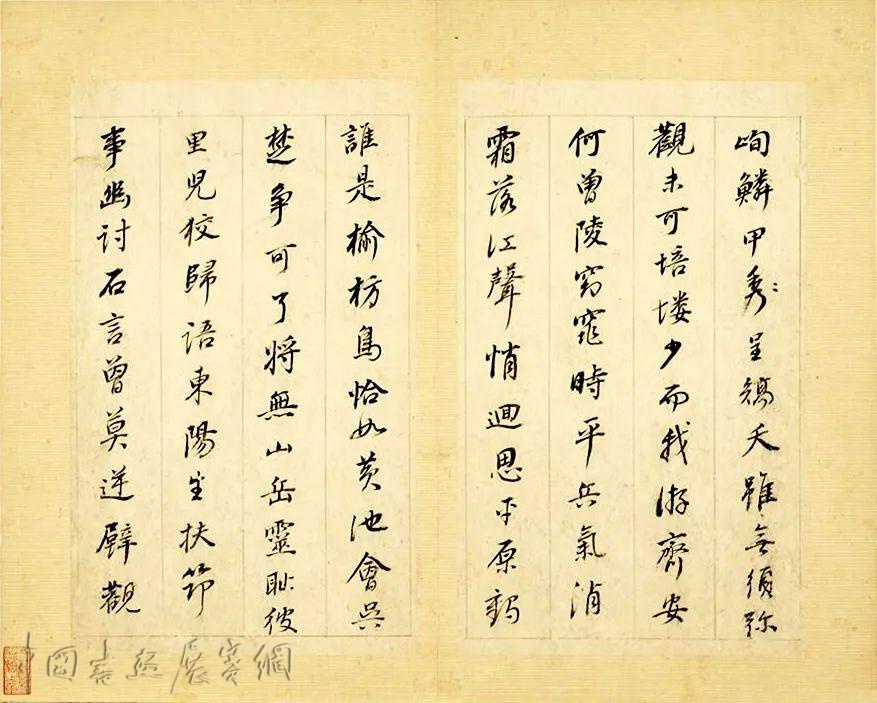 峋鱗甲秀〻呈矯夭雖無須弥
觀未可培塿少而我游齊安
何曾陵窈窕時平兵氣消
霜落江聲悄迴思平原
誰是榆枋鳥恰如黃池會吳
楚爭可了將無山岳靈恥彼
里児狡歸語東陽生扶筇
事幽討石言曾莫逆壁觀
中国書法展賽網